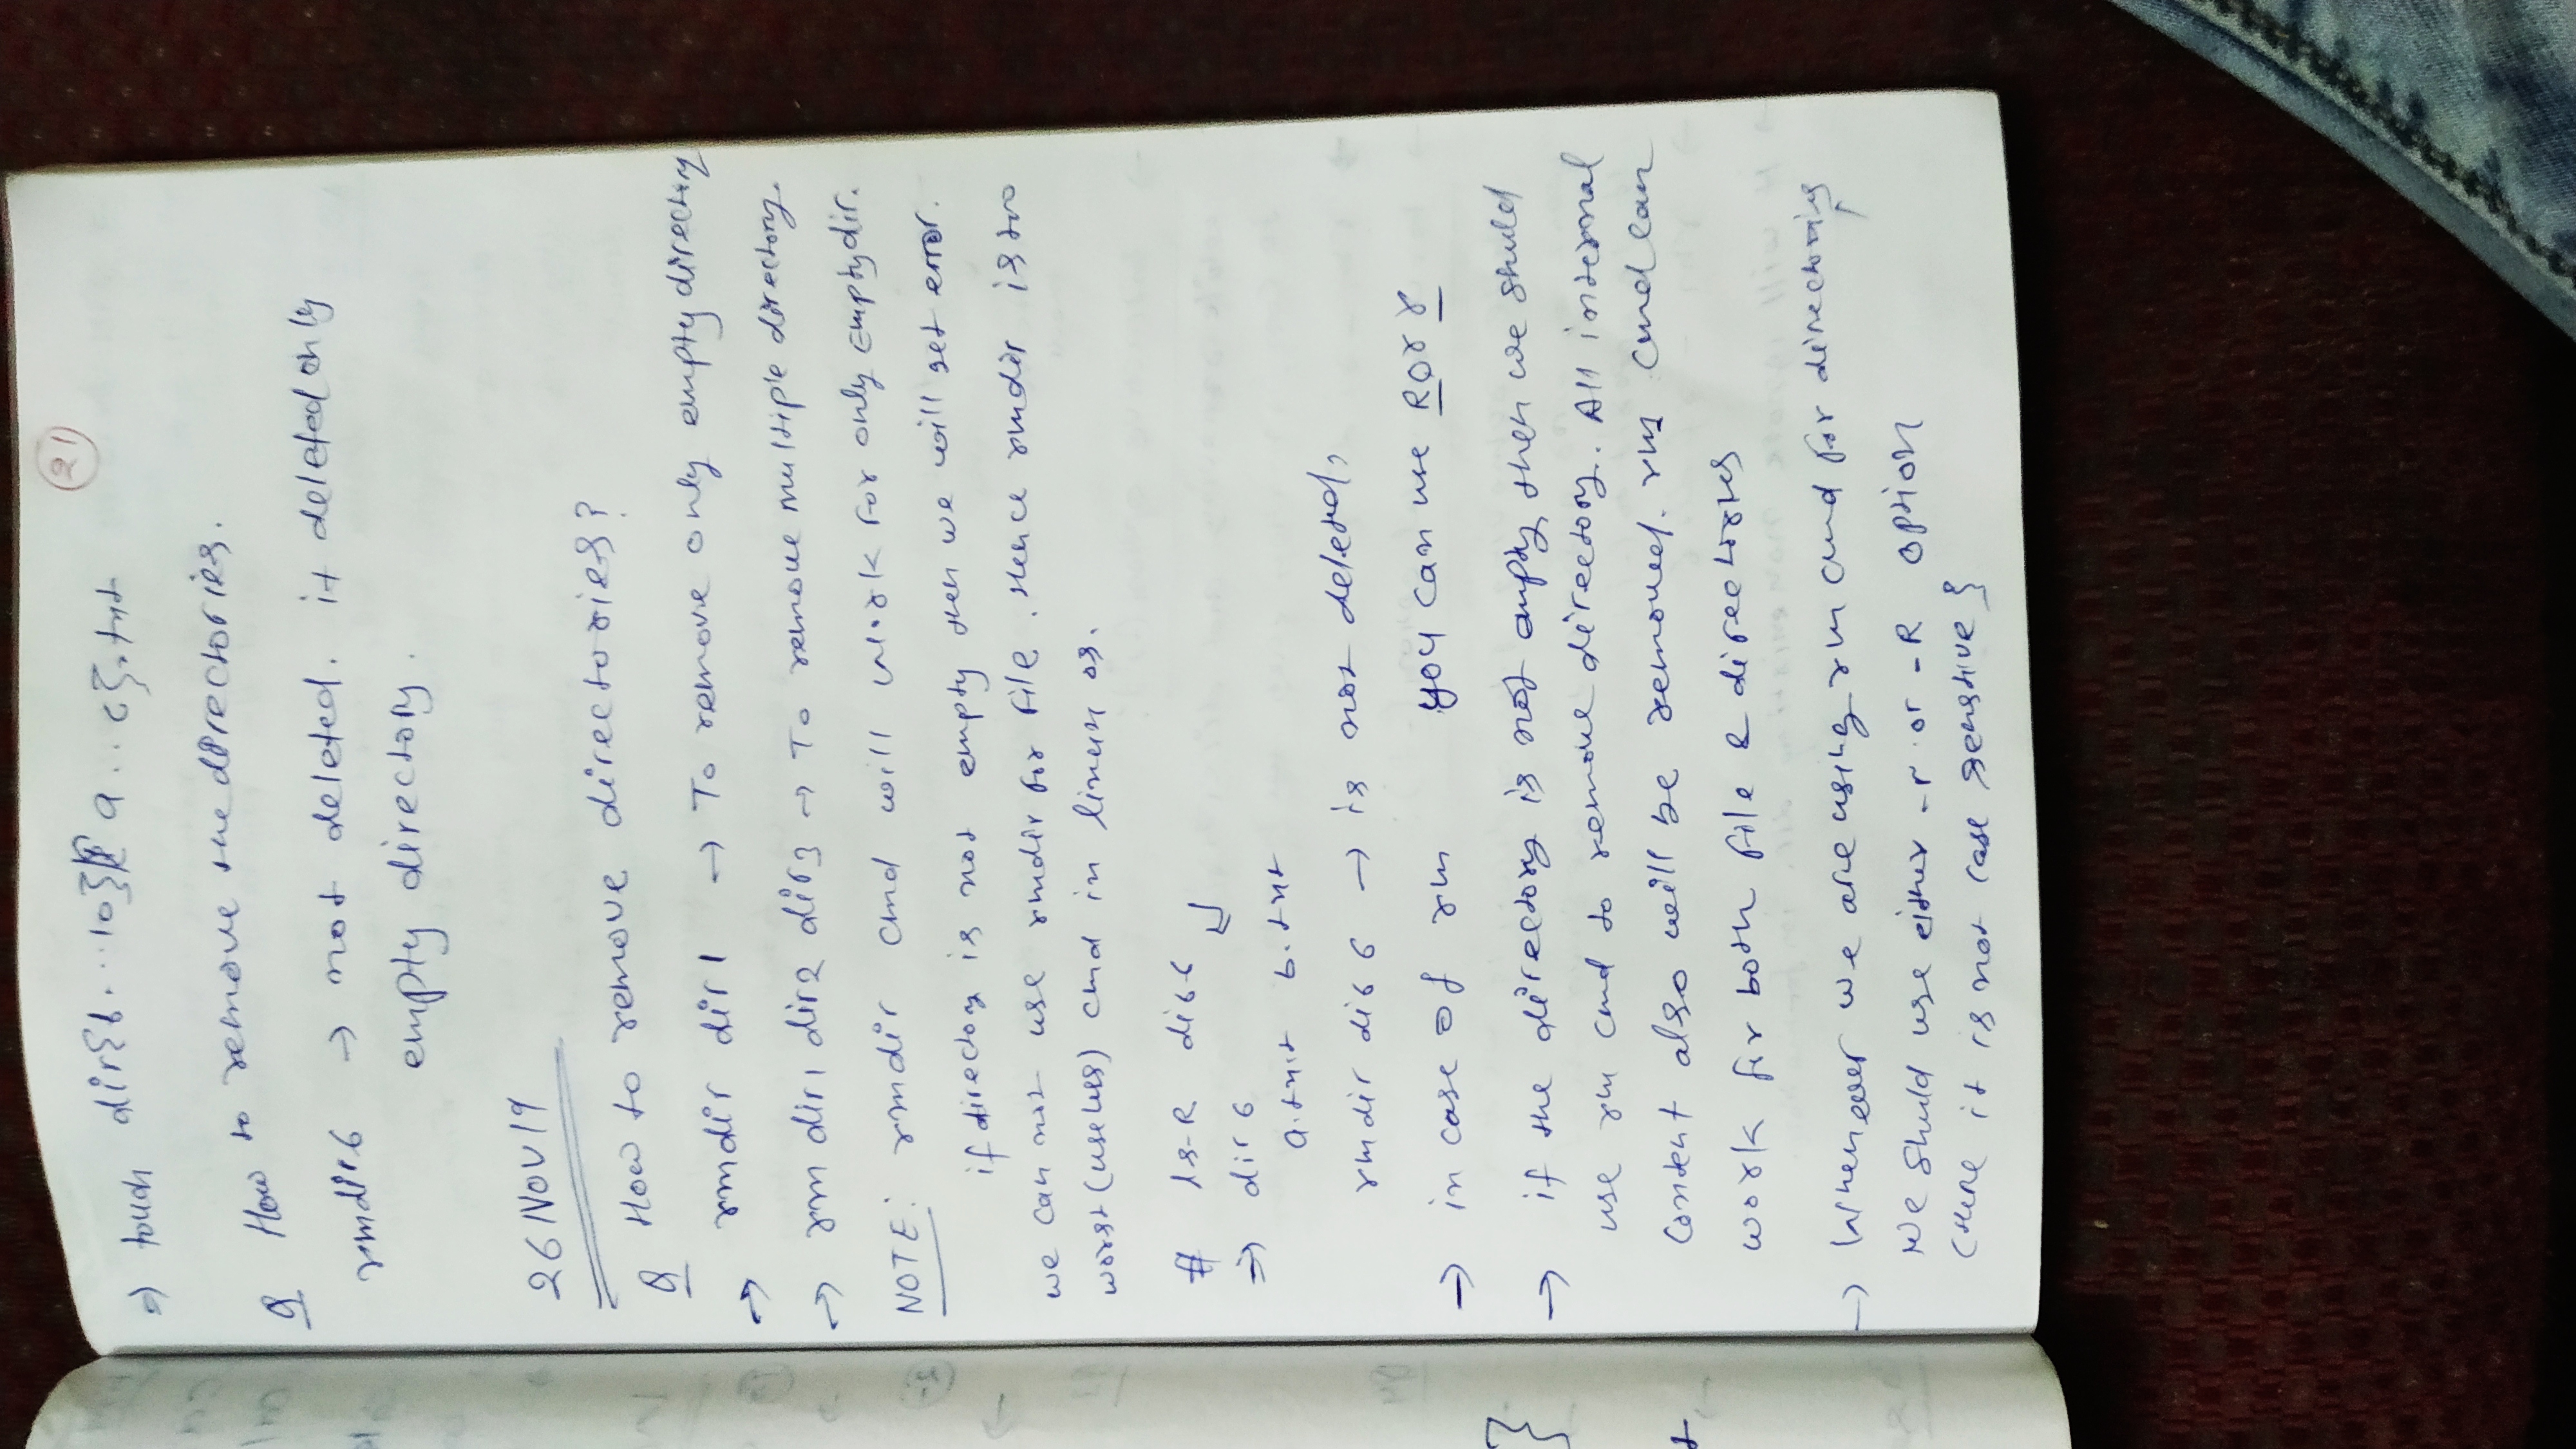 21
⇒ touch dir{6...10}/{a..c}.txt
Q How to remove the directories.
rmdir6 → not deleted. it deleted only
empty directory.
26 NOV 19
Q How to remove directories?
→ rmdir dir1 → To remove only empty directory
→ rm dir1 dir2 dir3 → To remove multiple directory.
NOTE: rmdir cmd will work for only Empty dir.
if directory is not empty then we will get error.
we can not use rmdir for file. Hence rmdir is too
worst (useless) cmd in linux os.
# ls-R dir6
⇒ dir 6
a.txt b.txt
rmdir dir6 → is not deleted,
→ in case of rm you can use R or r
→ if the directory is not empty then we shuld
use rm cmd to remove directory. All internal
content also will be removed. rm cmd can
work for both file & directories
→ Whenever we are using rm cmd for directories
We shuld use either -r or -R option
(Here it is not case senstive}